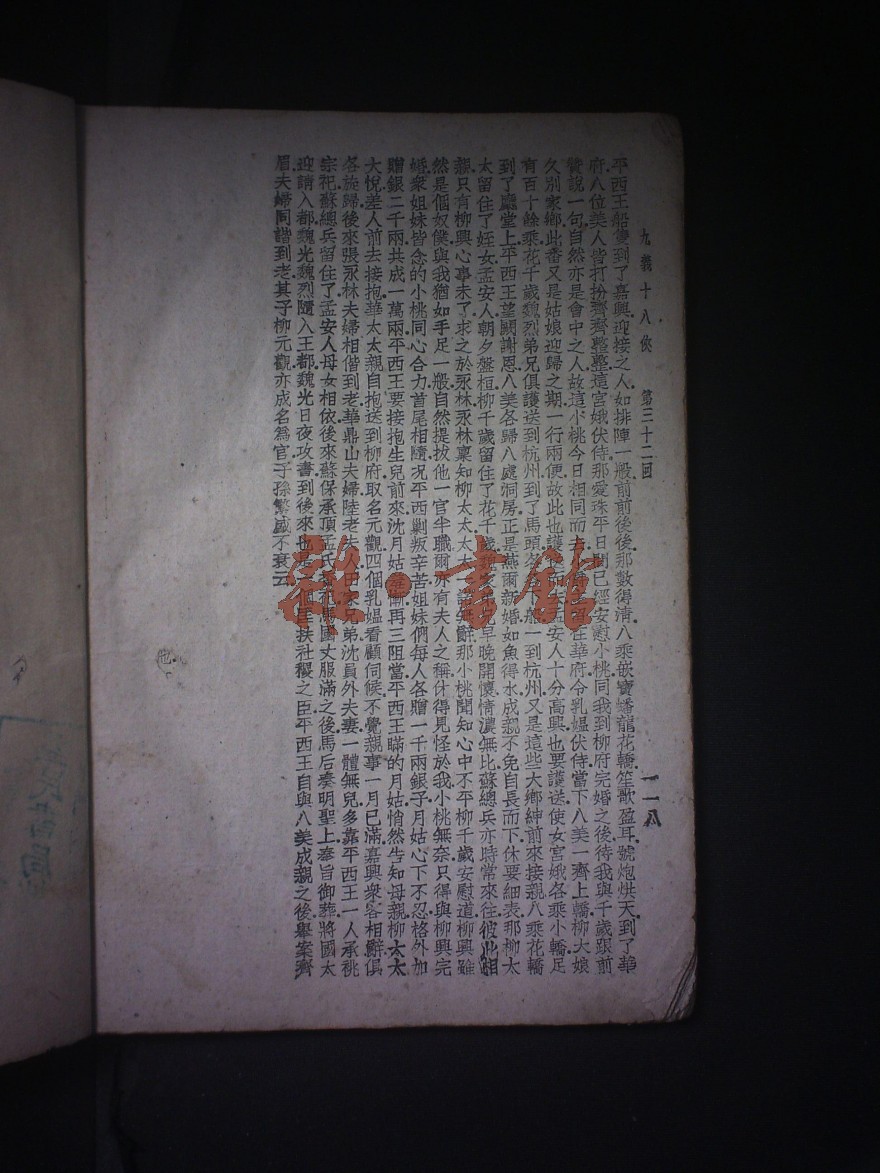 九義十八俠　第三十二回　一一八
平西王船隻到了嘉興迎接之人如排陣一般前前後後那數得清八乘嵌寶蟠龍花轎笙歌盈耳號炮烘天到了華
府八位美人皆打扮齊齊整整這宮娥伏侍那愛珠平日間已經安慰小桃同我到柳府完婚之後待我與千歲跟前
贊說一句自然亦是會中之人故這小桃今日相同而去 留在華府令乳媪伏侍當下八美一齊上轎柳大娘
久別家鄉此番又是姑娘迎歸之期一行兩便故此也護 孟安人十分高興也要護送使女宮娥各乘小轎足
有百十餘乘花千歲魏烈弟兄俱護送到杭州到了馬頭 船一到杭州又是這些大鄉紳前來接親八乘花轎
到了廳堂上平西王望闕謝恩八美各歸八處洞房正是燕爾新婚如魚得水成親不免自長而下休要細表那柳太
太留住了姪女孟安人朝夕盤桓柳千歲留住了花千歲 早晚開懷情濃無比蘇總兵亦時常來往彼此相
親只有柳興心事未了求之於永林永林稟知柳太太太 辭那小桃聞知心中不平柳千歲安慰道柳興雖
然是個奴僕與我猶如手足一般自然提拔他一官半職爾亦有夫人之稱休得見怪於我小桃無奈只得與柳興完
婚衆姐妹皆念的小桃同心合力首尾相隨况平西剿叛辛苦姐妹們每人各贈一千兩銀子月姑心下不忍格外加
贈銀二千兩共成一萬兩平西王要接抱生兒前來沈月姑 慚再三阻當平西王瞞的月姑悄然告知母親柳太太
大悅差人前去接抱華太太親自抱送到柳府取名元觀四個乳媪看顧伺候不覺親事一月已滿嘉興衆客相辭俱
各旋歸後來張永林夫婦相偕到老華鼎山夫婦陸老夫人 兄弟沈員外夫妻一體無兒多靠平西王一人承祧
宗祀蘇總兵留住了孟安人母女相依後來蘇保承頂孟氏 馬國丈服滿之後馬后奏明聖上奉旨御葬將國太
迎請入都魏光魏烈隨入王都魏光日夜攻書到後來也是一個匡扶社稷之臣平西王自與八美成親之後舉案齊
眉夫婦同諧到老其子柳元觀亦成名爲官子孫繁盛不衰云
雜·書館